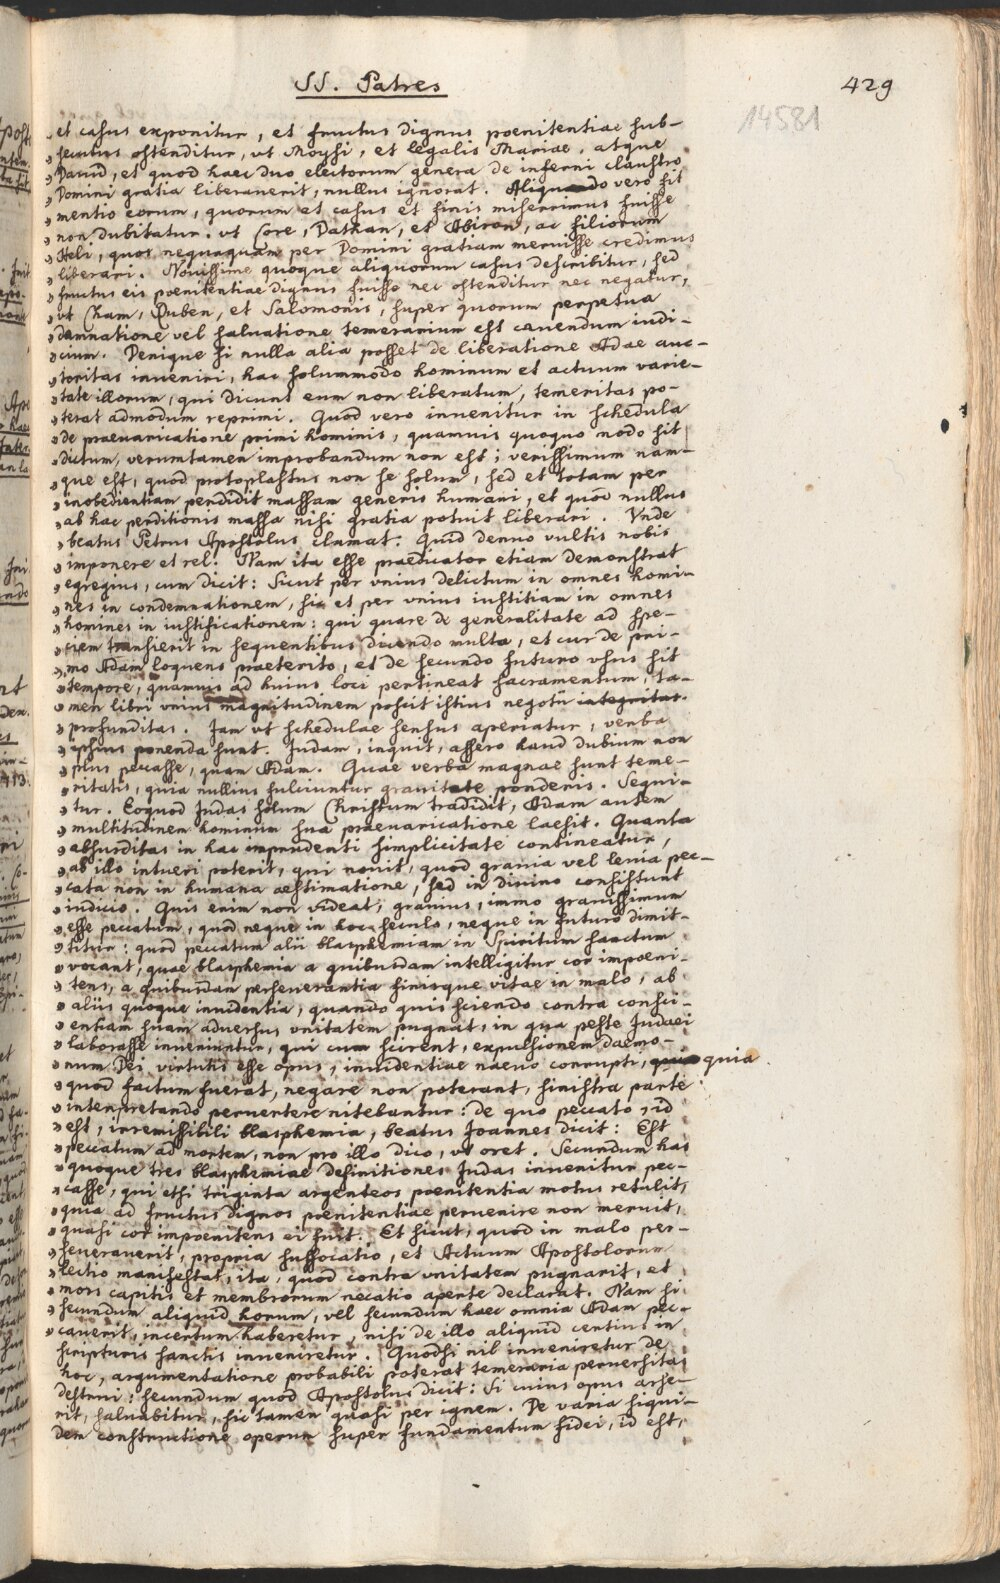 SS. Patres
429
14581
„ et casus exponitur, et fructus dignus poenitentiae sub-
„ secutus ostenditur, vt Moysi, et legalis Mariae, atque
„ Dauid, et quod haec duo electorum genera de inferni claustro
„ Domini gratia liberauerit, nullus ignorat. Aliquando vero fit
„ mentio eorum, quorum et casus et finis miserrimus fuisse
„ non dubitatur. vt Core, Dathan, et Abiron, ac filiorum
„ Heli, quos nequaquam per Domini gratiam meruisse credimus
„ liberari. Nouissime quoque aliquorum casus describitur, sed
„ fructus eis poenitentiae dignus fuisse nec ostenditur nec negatur,
„ vt Cham, Ruben, et Salomonis, super quorum perpetua
„ damnatione vel saluatione temerarium est cauendum iudi-
„ cium. Denique si nulla alia posset de liberatione Adae auc-
„ toritas inueniri, hac solummodo hominum et actuum varie-
„ tate illorum, qui dicunt eum non liberatum, temeritas po-
„ terat admodum reprimi. Quod vero inuenitur in schedula
„ de praeuaricatione primi hominis, quamuis quoquo modo sit
„ dictum, verumtamen improbandum non est; verissimum nam-
„ que est, quod protoplastus non se solum, sed et totam per
„ inobedientiam perdidit massam generis humani, et quod nullus
„ ab hac perditionis massa nisi gratia potuit liberari. Vnde
„ beatus Petrus Apostolus clamat: Quid denuo vultis nobis
„ imponere et rel: Nam ita esse praedicator etiam demonstrat
„ egregius, cum dicit: Sicut per vnius delictum in omnes homi-
„ nes in condemnationem, sic et per vnius iustitiam in omnes
„ homines in iustificationem: qui quare de generalitate ad spe-
„ ciem transierit in sequentibus dicendo multa, et cur de pri-
„ mo Adam loquens praeterito, et de secundo futuro vsus sit
„ tempore, quamuis ad huius loci pertineat sacramentum, ta-
„ men libri vnius magnitudinem poscit istius negotii integritas.
„ profunditas. Iam vt schedulae sensus aperiatur, verba
„ ipsius ponenda sunt. Iudam, inquit, assero haud dubium non
„ plus peccasse, quam Adam. Quae verba magnae sunt teme-
„ ritatis, quia nullius fulciuntur grauitate ponderis. Sequi-
„ tur. Eoquod Iudas solum Christum tradidit, Adam autem
„ multitudinem hominum sua praeuaricatione laesit. Quanta
„ absurditas in hac imprudenti simplicitate contineatur,
„ ab illo intueri poterit, qui nouit, quod grauia vel leuia pec-
„ cata non in humana aestimatione, sed in diuino consistunt
„ iudicio. Quis enim non videat, grauius, immo grauissimum
„ esse peccatum, quod neque in hoc seculo, neque in futuro dimit-
„ titur: quod peccatum alii blasphemiam in Spiritum sanctum
„ vocant, quae blasphemia a quibusdam intelligitur cor impoeni-
„ tens, a quibusdam perseuerantia finisque vitae in malo, ab
„ aliis quoque inuidentia, quando quis sciendo contra consci-
„ entiam suam aduersus vnitatem pugnat, in qua peste Iudaei
„ laborasse inueniuntur, qui cum scirent, expulsionem daemo-
„ num Dei virtutis esse opus, inuidentiae naeuo corrupti, quia
„ quod factum fuerat, negare non poterant, sinistra parte
„ interpretando peruertere nitebantur: de quo peccato, id
„ est, irremissibili blasphemia, beatus Ioannes dicit: Est
„ peccatum ad mortem, non pro illo dico, vt oret. Secundum has
„ quoque tres blasphemiae definitiones Iudas inuenitur pec-
„ casse, qui etsi triginta argenteos poenitentia motus retulit,
„ quia ad fructus dignos poenitentiae peruenire non meruit,
„ quasi cor impoenitens ei fuit. Et sicut, quod in malo per-
„ seuerauerit, propria suffocatio, et Actuum Apostolorum
„ lectio manifestat, ita, quod contra vnitatem pugnarit, et
„ mors capitis et membrorum necatio aperte declarat. Nam si
„ secundum aliquid horum, vel secundum haec omnia Adam pec-
„ cauerit, incertum haberetur, nisi de illo aliquid certius in
scripturis sanctis inueniretur. Quodsi nil inueniretur de
hoc, argumentatione probabili poterat temeraria peruersitas
destrui: secundum quod Apostolus dicit: Si cuius opus arse-
rit, saluabitur, sic tamen quasi per ignem. De varia siqui-
dem constructione operum super fundamentum fidei, id est,